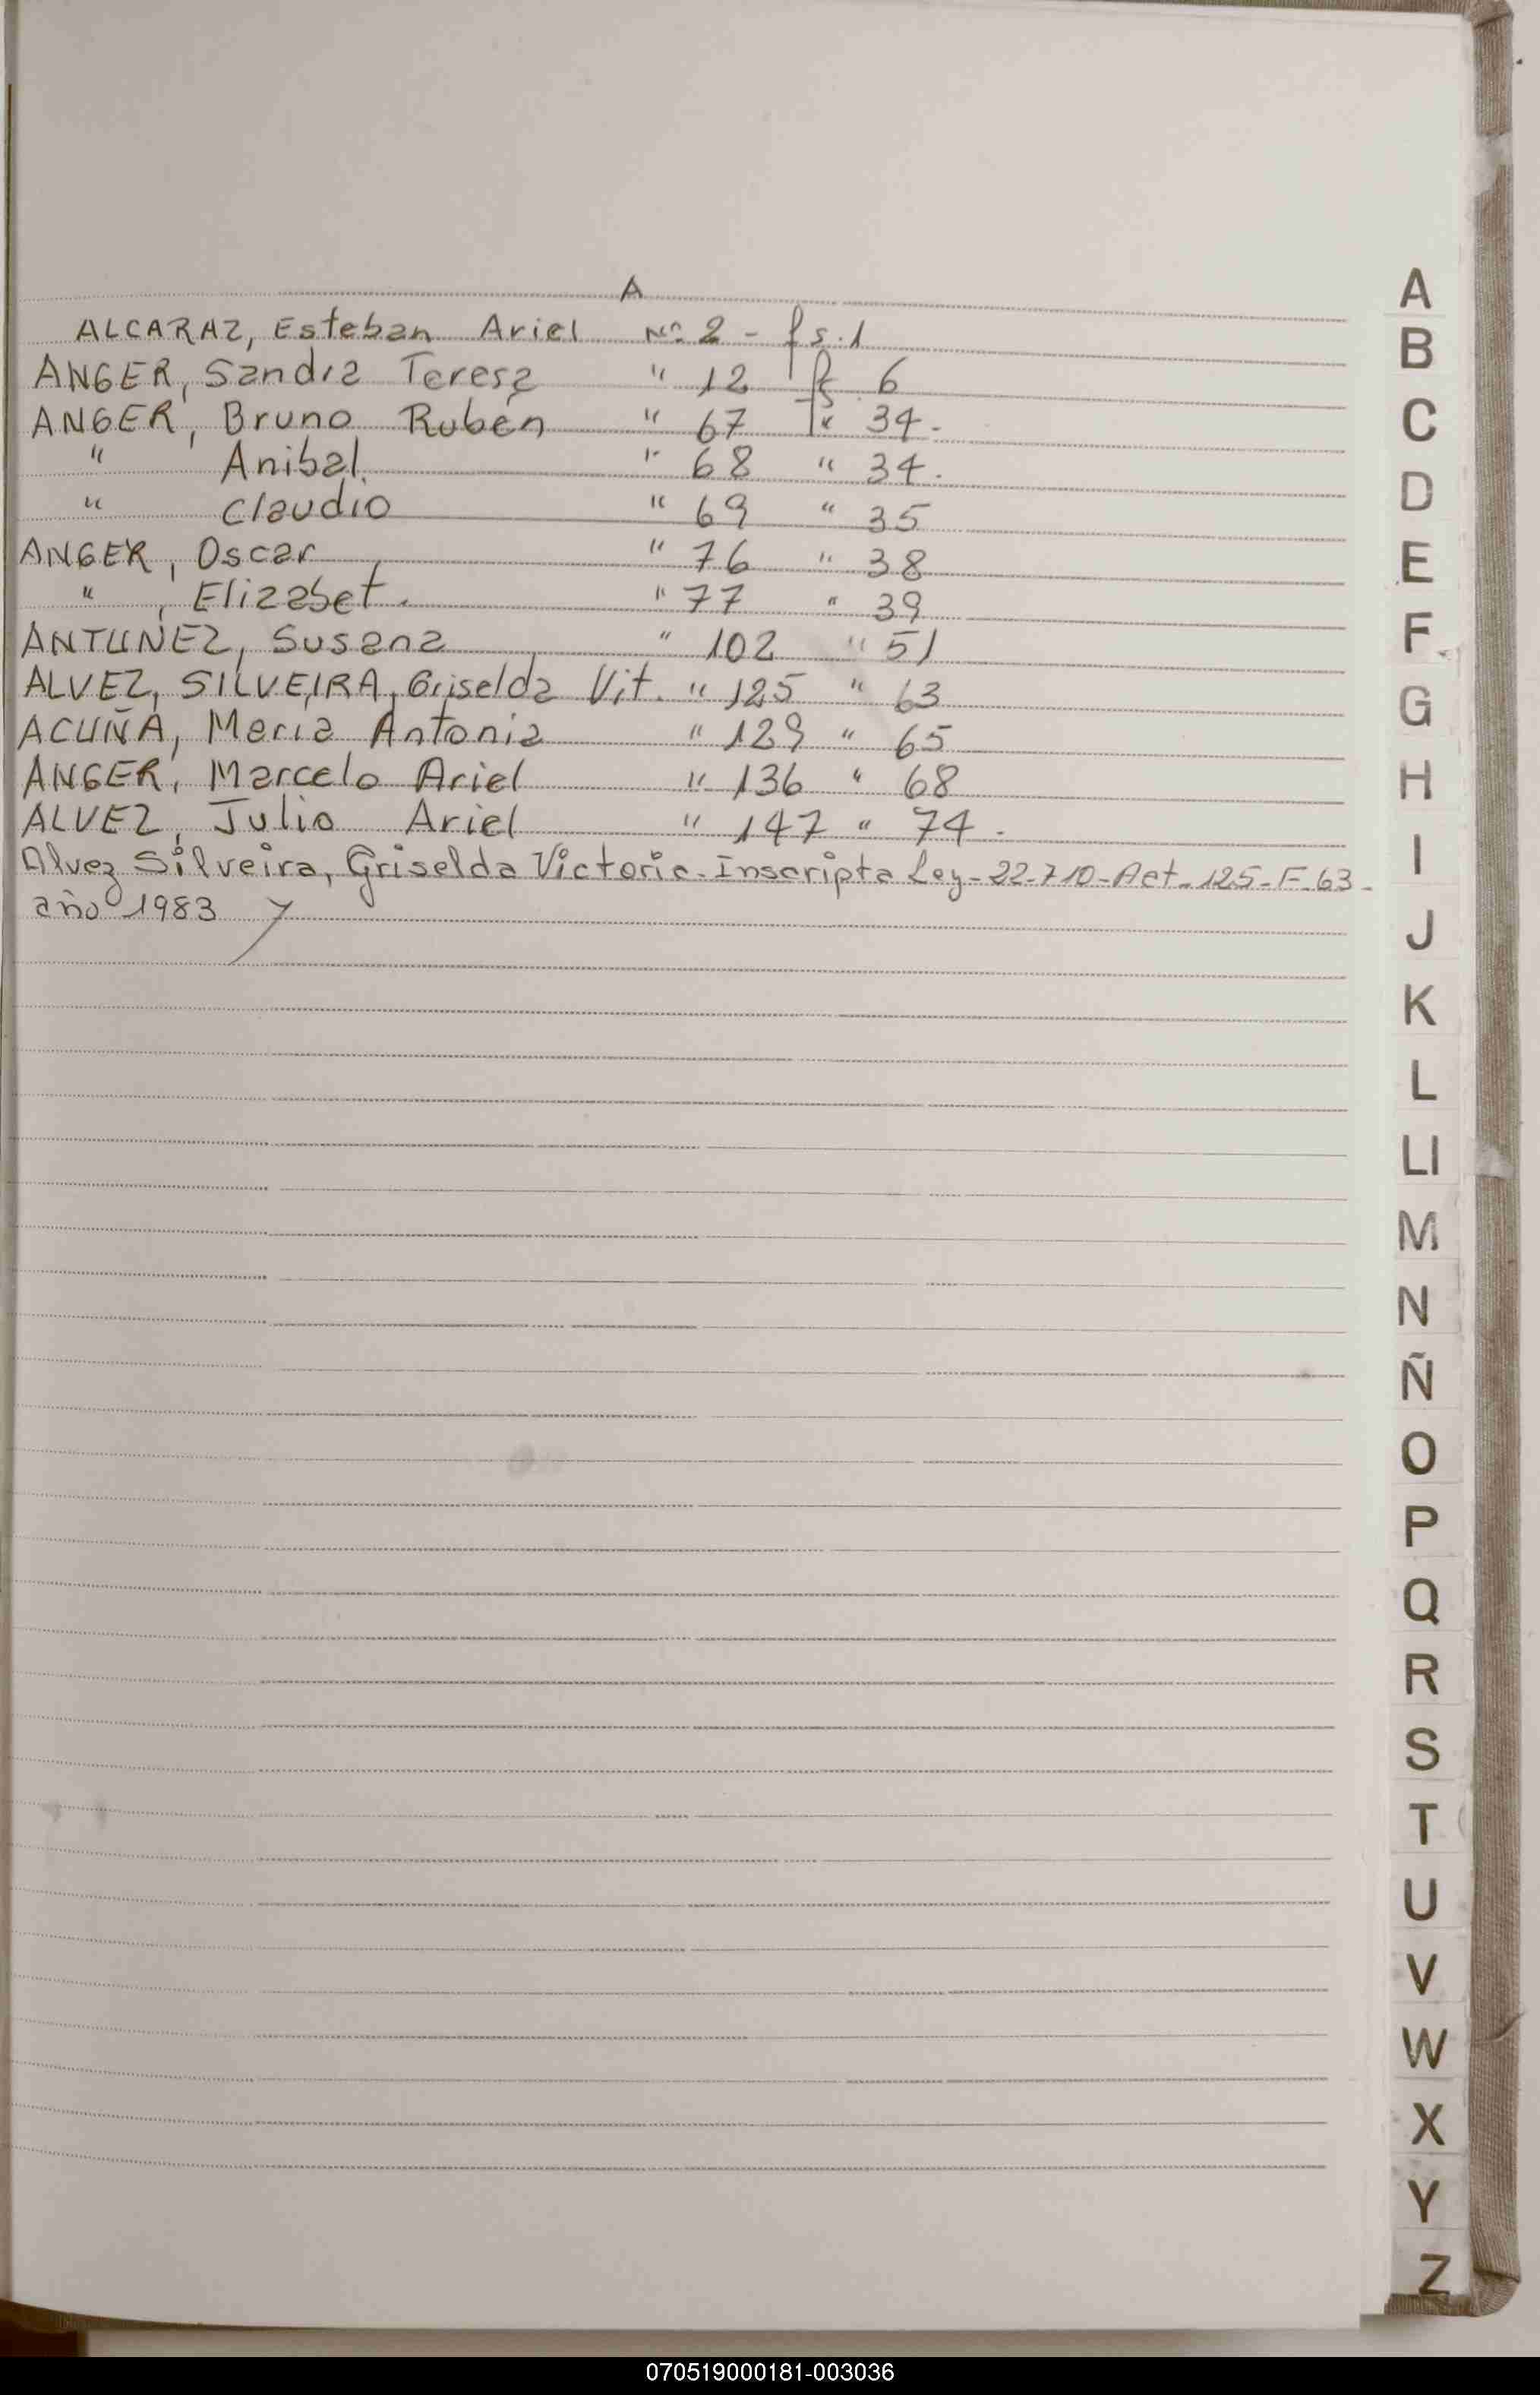 A
ALCARAZ, Esteban Ariel Nº 2 - fs. 1
ANGER, Sandra Teresa " 12 fs 6
ANGER, Bruno Rubén " 67 " 34.
" Anibal. " 68 " 34.
" Claudio " 69 " 35
ANGER, Oscar " 76 " 38
" , Elizabet. " 77 " 39
ANTUNEZ, Susana " 102 " 51
ALVEZ, SILVEIRA, Griselda Vit. " 125 " 63
ACUÑA, Maria Antonia " 129 " 65
ANGER, Marcelo Ariel " 136 " 68
ALVEZ, Julio Ariel " 147 " 74.
Alvez Silveira, Griselda Victoria. Inscripta Ley-22.710-Act-125-F-63-
año 1983
A
B
C
D
E
F
G
H
I
J
K
L
Ll
M
N
Ñ
O
P
Q
R
S
T
U
V
W
X
Y
Z
070519000181-003036